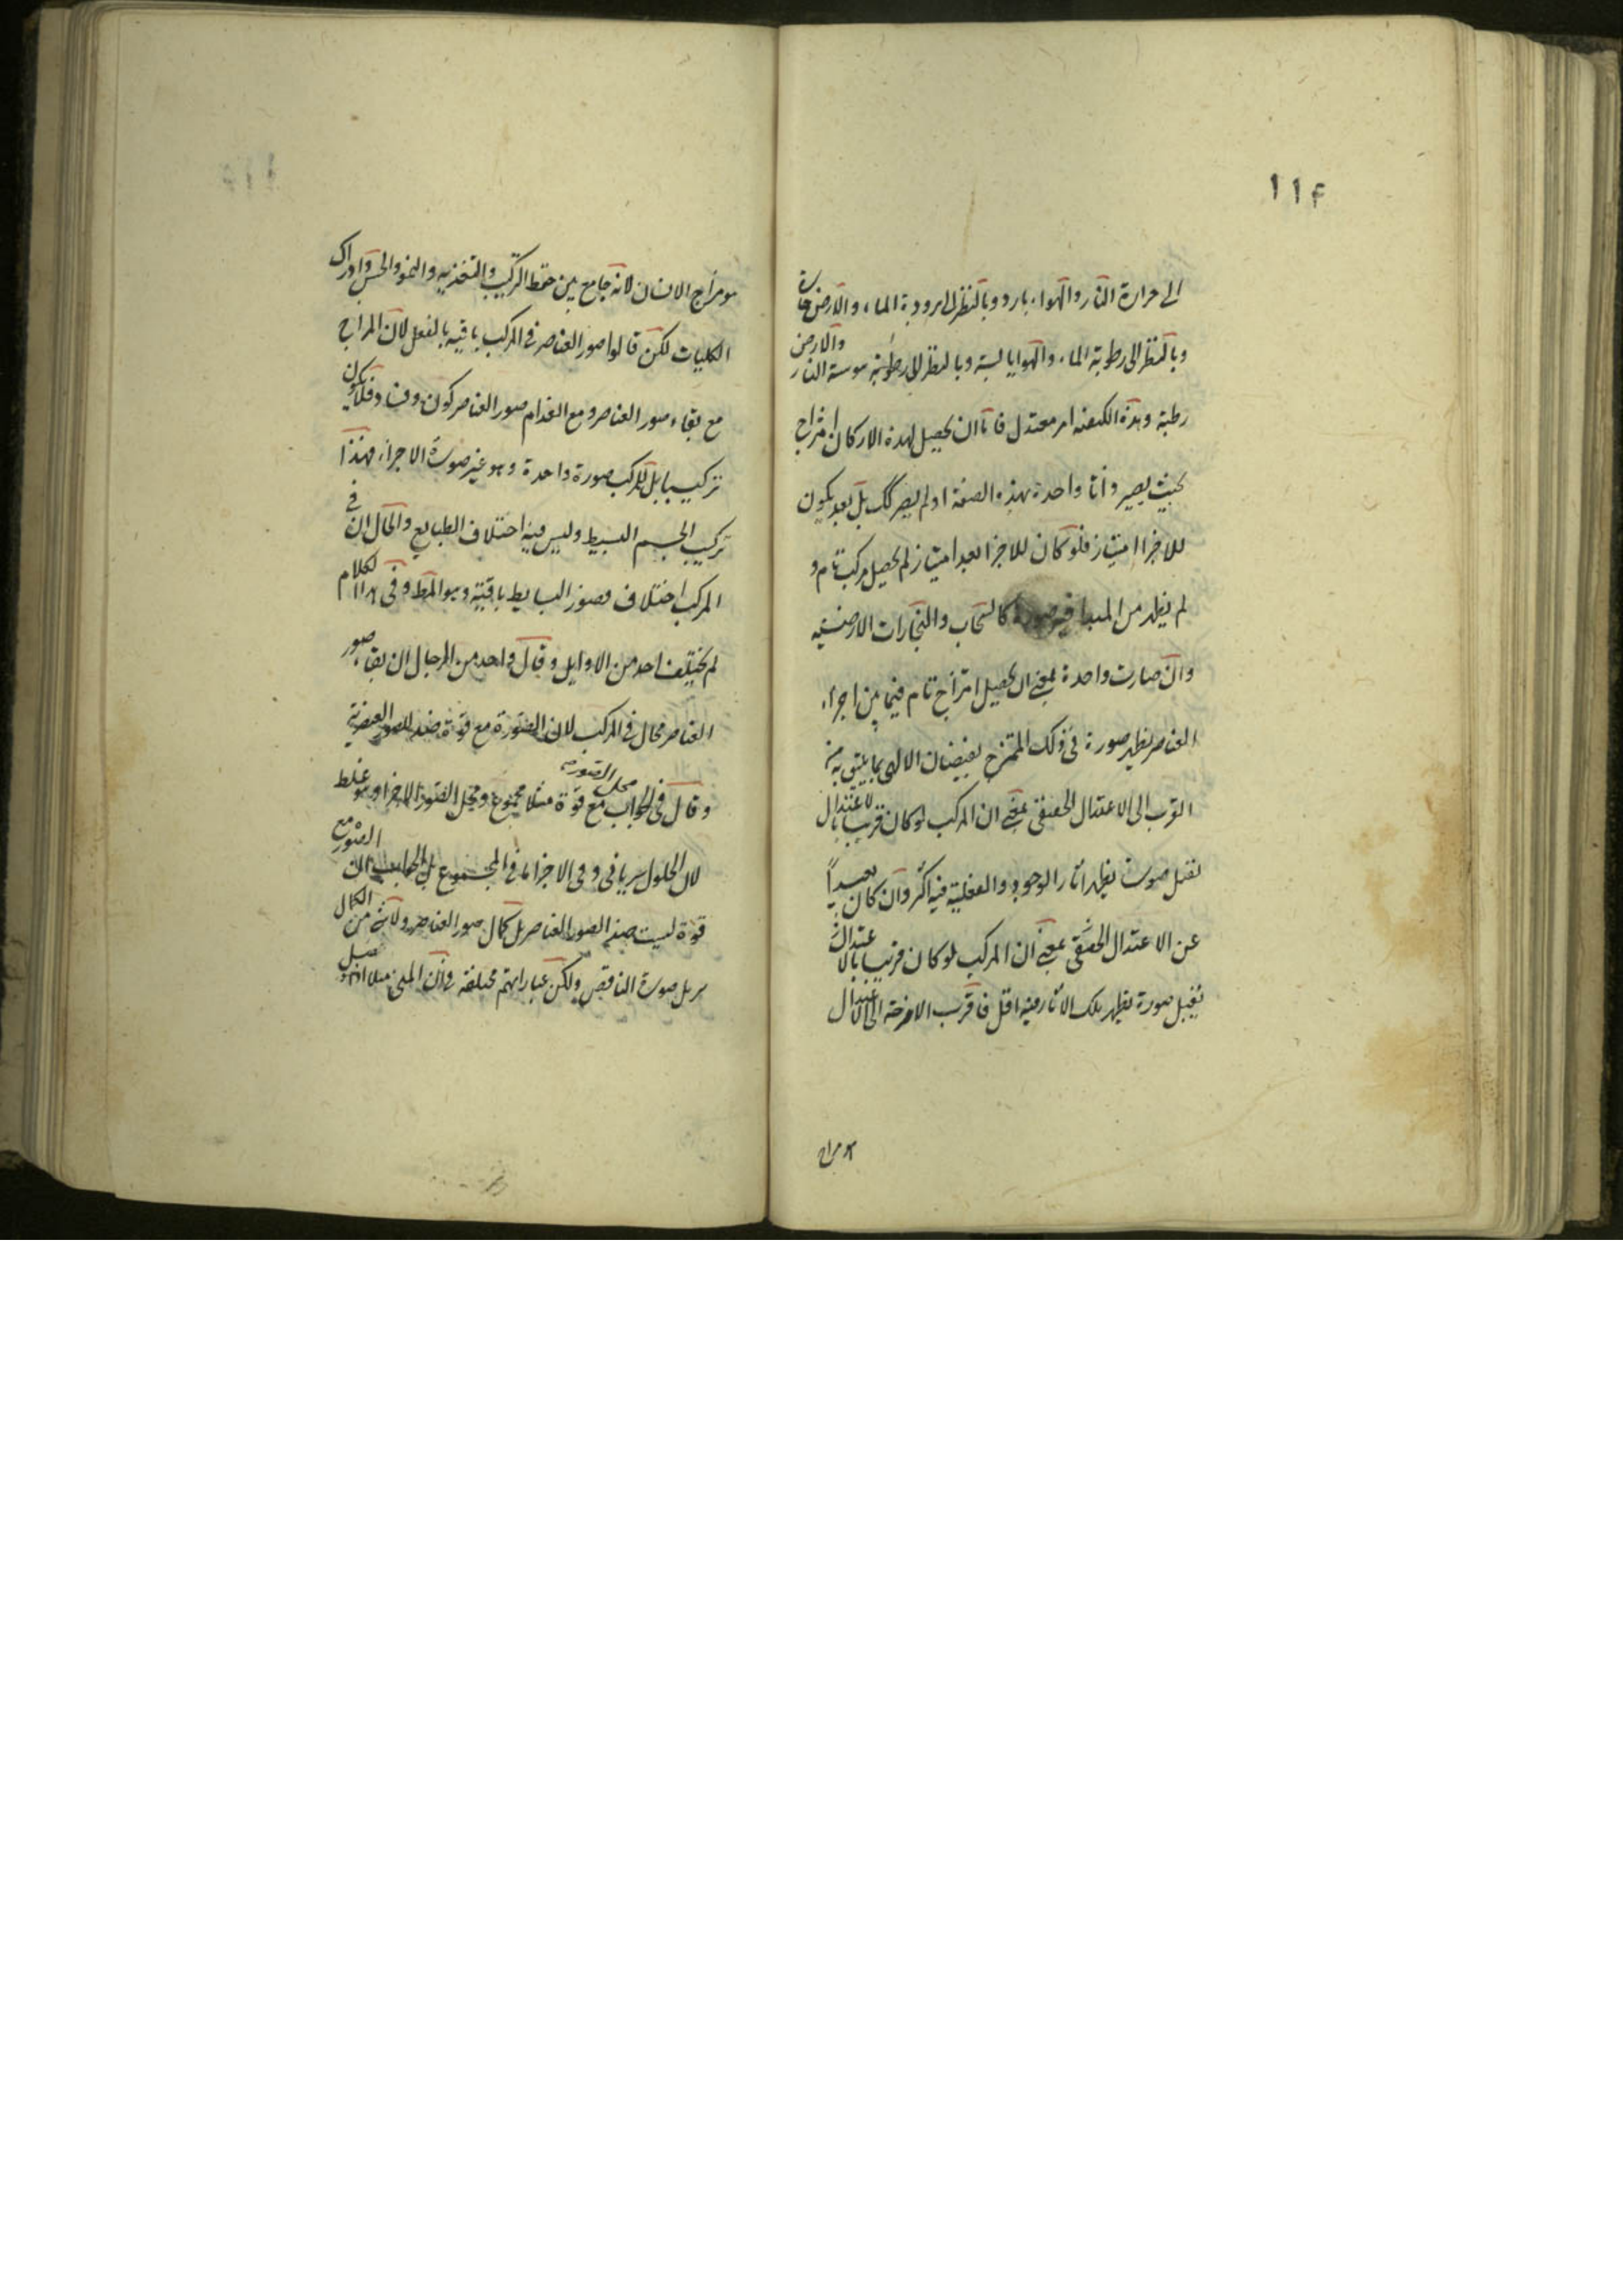 ١١٤
الى حرارة النار والهواء بارد وبالنظر الى برودة الماء والارض حارة
وبالنظر الى رطوبة الماء والهوا يابسة وبالنظر الى يبوسة النار والارض
رطبة وهذه الكيفية امر معتدل فاما ان يحصل لهذه الاركان امتزاج
بحيث يصير واحدة بهذه الصفة او لم يصر كك بل بعد يكون
للاجزا امتياز فلو كان للاجزا بعد امتياز لم يحصل مركب تام و
لم يظهر من المبدا كالسحاب والبخارات الارضية
وان صارت واحدة بمعنى ان يحصل امتزاج تام فيما بين اجزاء
العناصر يظهر صورة في ذلك الممتزج بفيضان الالهى بما يليق به من
القرب الى الاعتدال الحقيقى بمعنى ان المركب لو كان قريبا بالاعتدال
تقبل صورة يظهر اثار الوجود والفعلية فيه اكثر وان كان بعيداً
عن الاعتدال الحقيقى بمعنى ان المركب لو كان قريبا بالاعتدال
يقبل صورة يظهر تلك الاثار فيه اقل فاقرب الامزجة الى الاعتدال
هو مزاج الانسان لانه جامع بين حفظ التركيب والتغذيه والنمو والحس وادراك
الكليات لكن قالوا صور العناصر في المركب باقية بالفعل لان المزاج
مع بقاء صور العناصر ومع انعدام صور العناصر كون وفساد فلا يكون
تركيبا بل للمركب صورة واحدة وهو غير صورة الاجزاء فهذا
تركيب الجسم البسيط وليس فيه اختلاف الطبايع والحال ان في
المركب اختلاف فصور البسايط باقية وهو المط وفى الكلام
لم يختلف احد من الاوايل وقال واحد من الرجال ان بقاء صور
العناصر محال في المركب لان الصورة مع قوة ضد للصور العنصرية
وقال في الجواب محل الصورة مع قوة مثلا مجموع ومحل الصور الاجزا وهو غلط
لان الحلول سريانى وفى الاجزا ما في المجموع بل الجواب ان الصور مع
قوة ليست ضد الصور العناصر بل كمال صور العناصر ولا شئ من الكمال
صورة الناقص ولكن عباراتهم مختلفة